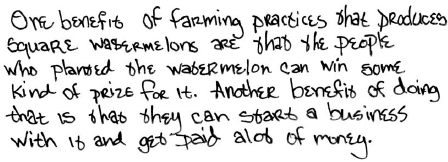 One benefit of farming practices that produces
square watermelons are that the people
who planted the watermelon can win some
kind of prize for it. Another benefit of doing
that is that they can start a business
with it and get paid alot of money.